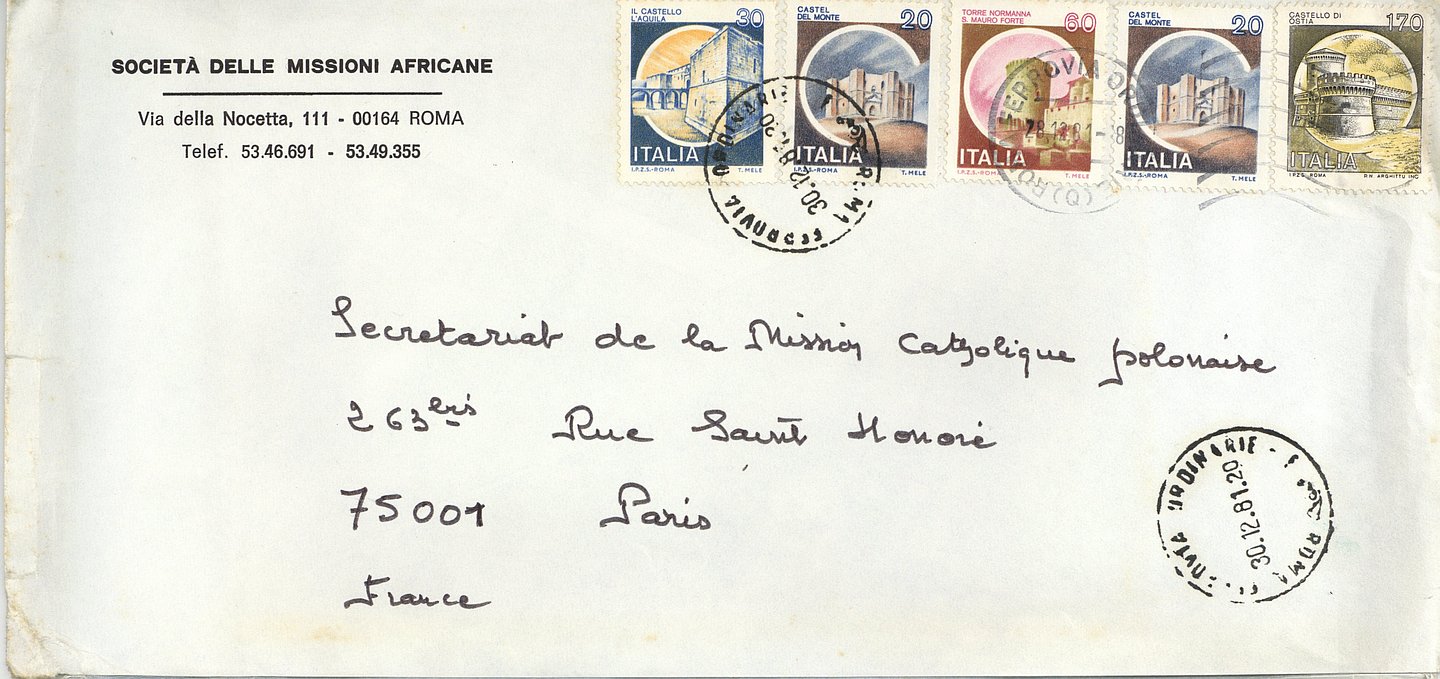 SOCIETÀ DELLE MISSIONI AFRICANE
Via della Nocetta, 111 - 00164 ROMA
Telef. 53.46.691 - 53.49.355
IL CASTELLO
L'AQUILA
30
ITALIA
I.P.Z.S.-ROMA T. MELE
CASTEL
DEL MONTE
20
ITALIA
I.P.Z.S.-ROMA T. MELE
TORRE NORMANNA
S. MAURO FORTE
60
ITALIA
I.P.Z.S.-ROMA T. MELE
CASTEL
DEL MONTE
20
ITALIA
I.P.Z.S.-ROMA T. MELE
CASTELLO DI
OSTIA
170
ITALIA
I.P.Z.S. ROMA R.N. ARGHITTU INC
ORDINARIE ROMA FERROVIA
30.12.81.20
FERROVIA
28.12.81-18
Secretariat de la Mission Catholique polonaise
263 bis Rue Saint Honoré
75001 Paris
France
ORDINARIE - ROMA
30.12.81.20